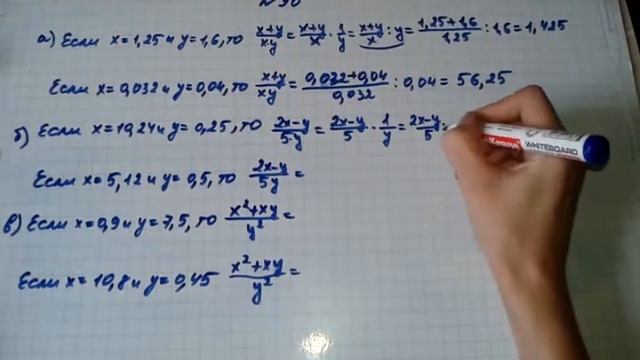 а) Если x=1,25 и y=1,6, то (x+y)/(xy) = (x+y)/x · 1/y = (x+y)/x : y = (1,25+1,6)/1,25 : 1,6 = 1,425
Если x=0,032 и y=0,04, то (x+y)/(xy) = (0,032+0,04)/0,032 : 0,04 = 56,25
б) Если x=10,24 и y=0,25, то (2x-y)/(5·y) = (2x-y)/5 · 1/y = (2x-y)/5 :
WHITEBOARD
Если x=5,12 и y=0,5, то (2x-y)/(5y) =
в) Если x=0,9 и y=7,5, то (x²+xy)/y² =
Если x=10,8 и y=0,45 (x²+xy)/y² =